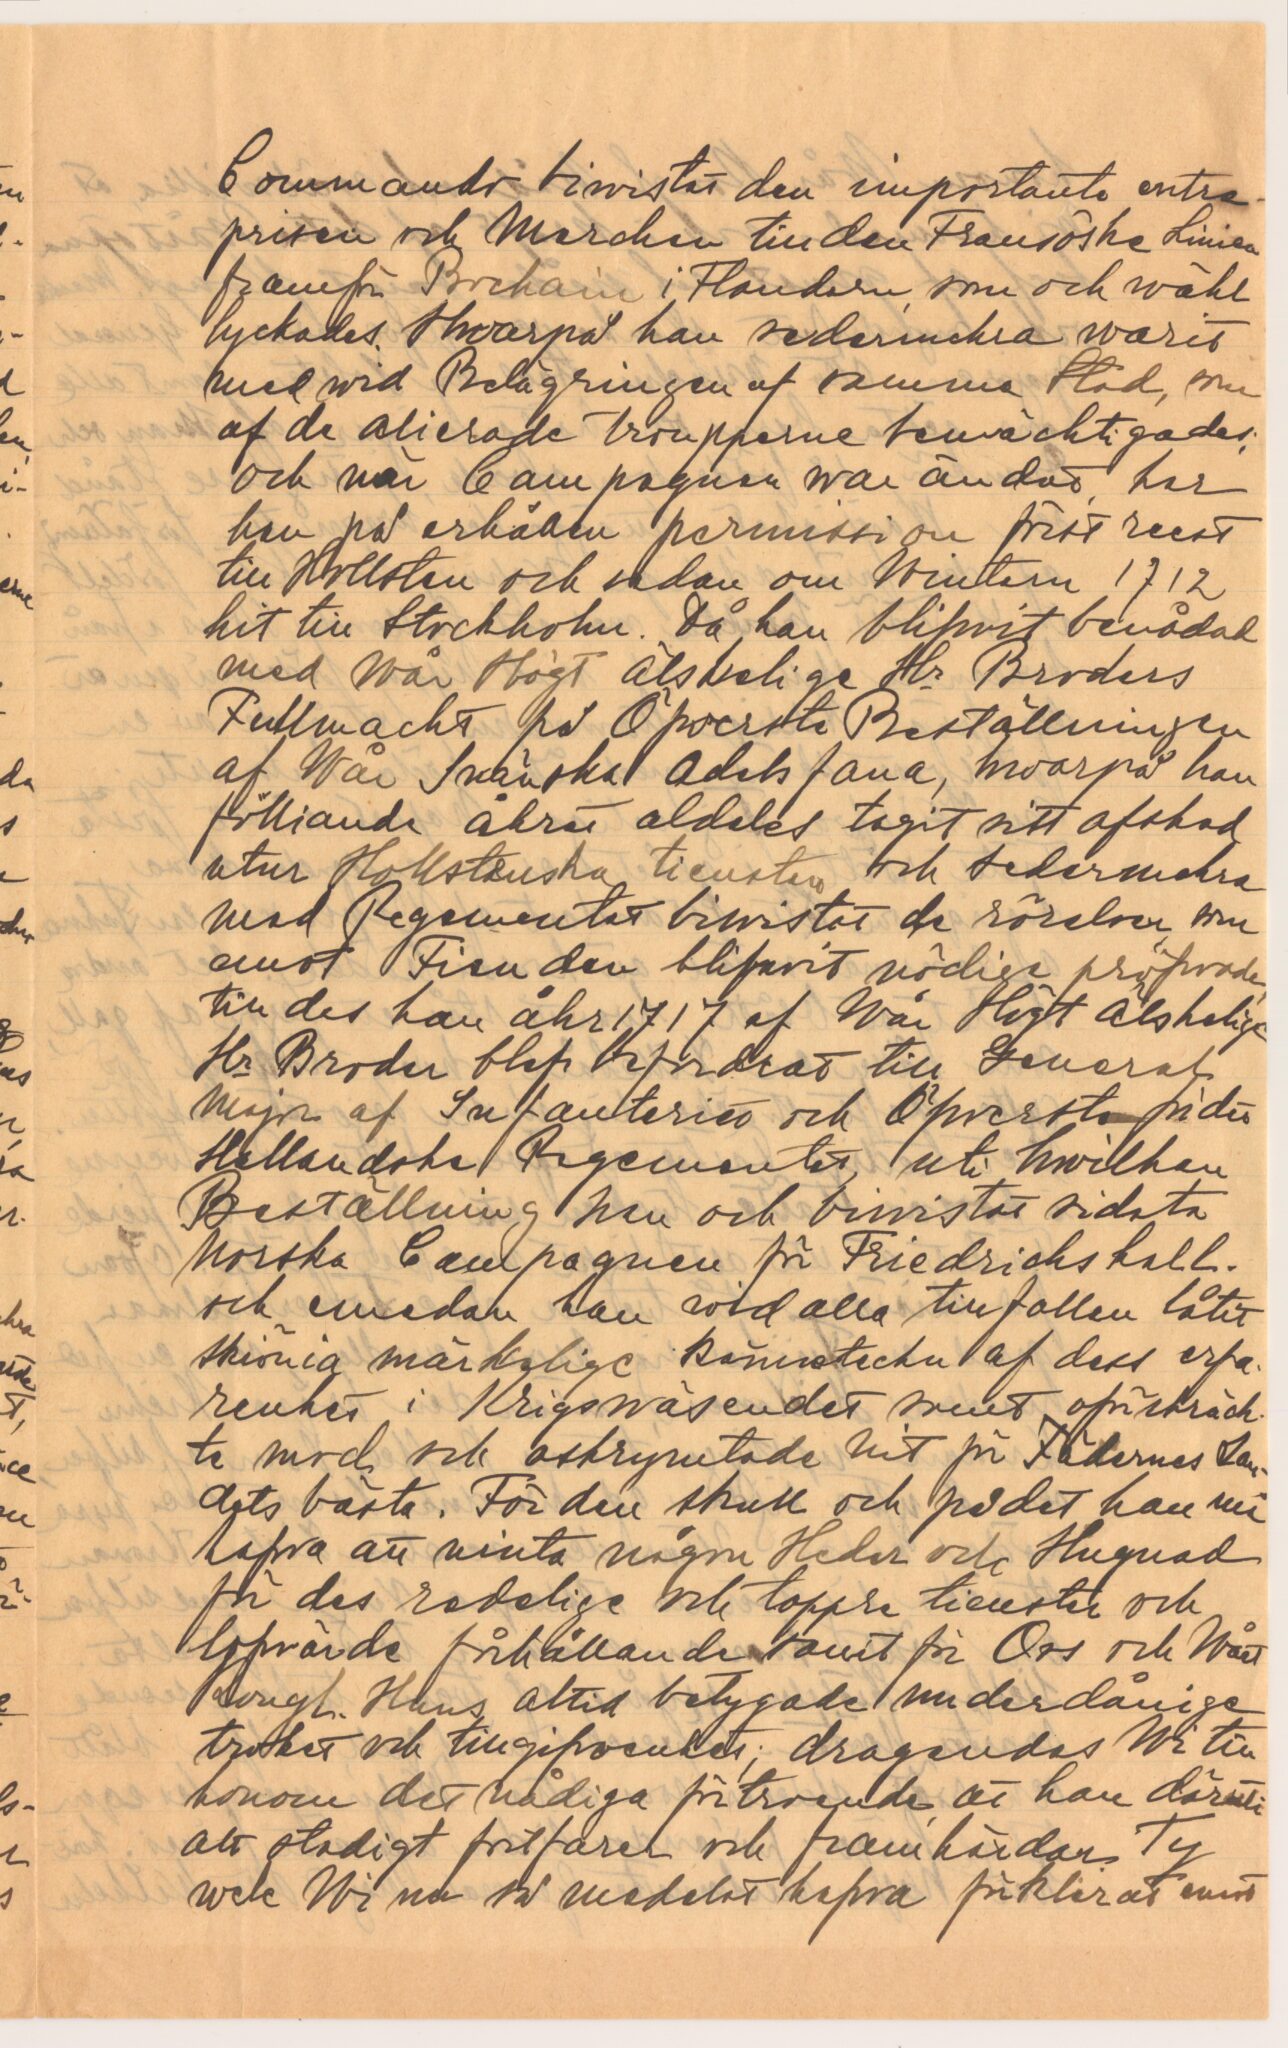 Commando biwistat den importante entre-
prisen och Marchen till den Fransöske Linien
framför Bochain i Flandern, som och wähl
lyckades. Hwarpå han sedermehra warit
med wid Belägringen af samma Stad, som
af de alierade troupperne bemächtigades;
och när Campagnen war ändat, har
han på erhållen permission först reest
till Hollsten och sedan om Wintern 1712
hit till Stockholm. Då han blifwit benådad
med Wår Högt älskelige Hr Broders
Fullmacht på Öfwerste Beställningen
af Wår Swänska Adelsfana, hwarpå han
följiande åhret aldeles tagit sitt afsked
utur Hollstenska tiensten och sedermehra
med Regementet biwistat de rörelser som
emot Fienden blifwit nödige pröfwade,
till des han åhr 1717 af Wår Högt älskelige
Hr Broder blef befordrat till General
Major af Infanteriet och Öfwerste för det
Hallandske Regementet, uti hwilken
Beställning han och biwistat sidsta
Norska Campagnen för Friedrichshall.
och emedan han wid alla tillfällen låtit
skiönia märkelige kännetechn af dess erfa-
renhet i Krigswäsendet samt oförskräck-
te mod och oskrymtade nit för Fädernes Lan-
dets bästa. För den skull och på det han må
hafwa att niuta någon Heder och Hugnad
för des redelige och tappre tienster och
lofwärde förhållande samt för Oss och Wårt
Kongl. Hus altid betygade underdånige
trohet och tillgifwenhet; dragandes Wi till
honom det nådiga förtroende at han däruti
alt stadigt fortfarer och framhärdar. Ty
wele Wi nu så medelst hafwa förklarat emot